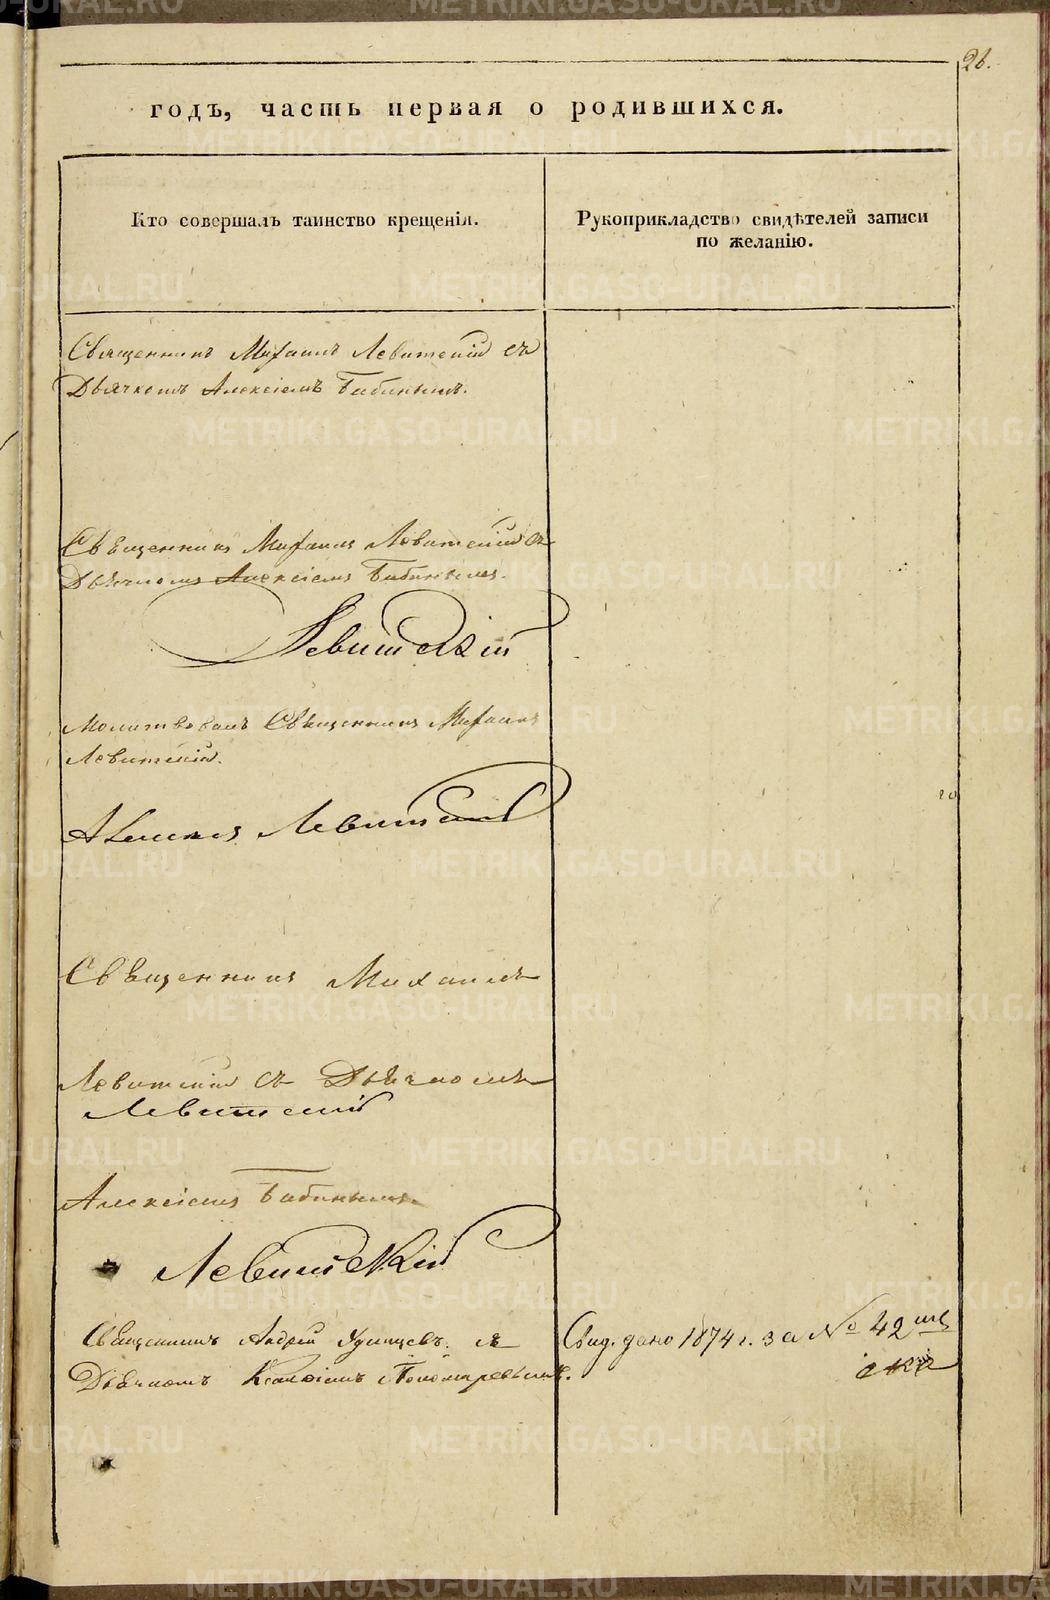 26.
годъ, часть первая о родившихся.
Кто совершалъ таинство крещенія.
Рукоприкладство свидѣтелей записи
по желанію.
Священникъ Михаилъ Левитскій съ
Дьячкомъ Алексіемъ Бабинымъ.
Священникъ Михаилъ Левитскій съ
Дьячкомъ Алексіемъ Бабинымъ.
Левитскій
Молитвовалъ Священникъ Михаилъ
Левитскій.
Левитскій
Священникъ Михаилъ
Левитскій съ Дьячкомъ
Левитскій
Алексіемъ Бабинымъ.
Левитскій
Священникъ Андрей съ
Дьячкомъ Пономаревымъ.
Свид. дано 1874 г. за № 42
METRIKI.GASO-URAL.RU